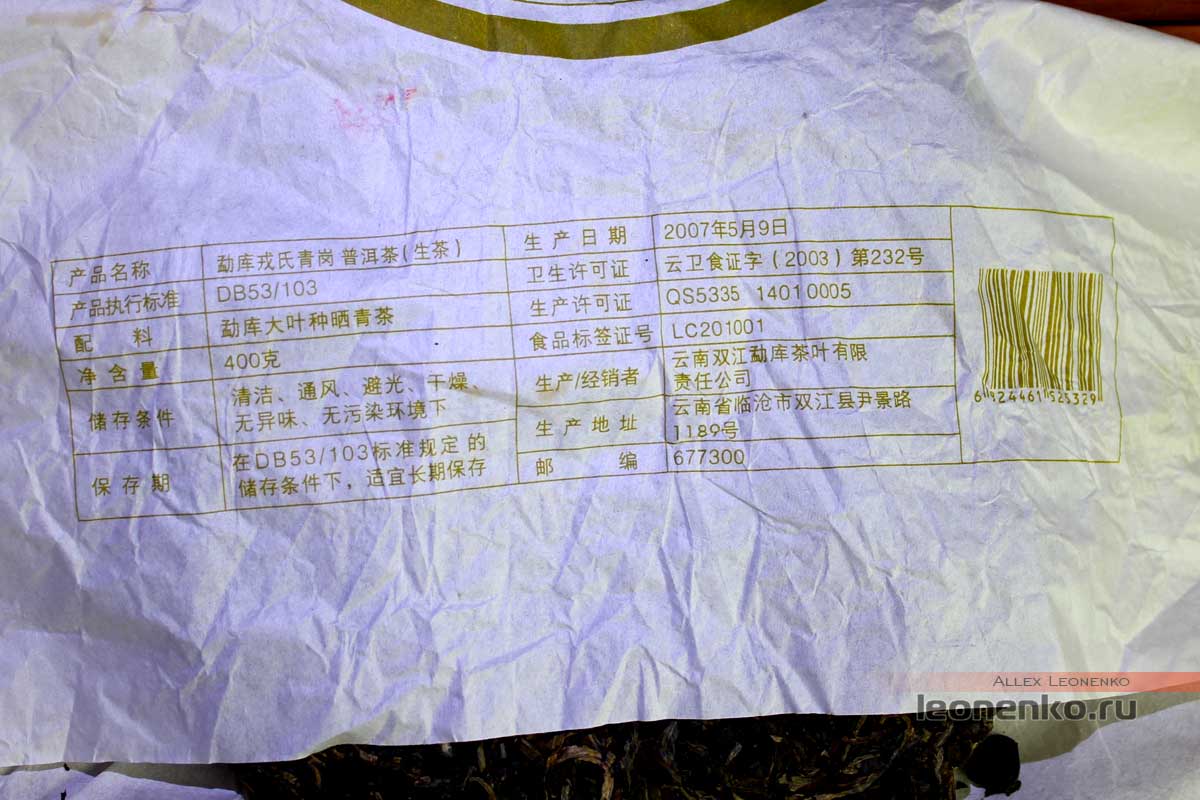 产品名称 勐库戎氏青岗 普洱茶(生茶)
产品执行标准 DB53/103
配 料 勐库大叶种晒青茶
净含量 400克
储存条件 清洁、通风、避光、干燥、
无异味、无污染环境下
保存期 在DB53/103标准规定 的
储存条件下，适宜长期保存
生产日期 2007年5月9日
卫生许可证 云卫食证字(2003)第232号
生产许可证 QS5335 1401 0005
食品标签证号 LC201001
生产/经销者 云南双江勐库茶叶有限
责任公司
生产地址 云南省临沧市双江县尹景路
1189号
邮 编 677300
6 524461 525329
Allex Leonenko
leonenko.ru